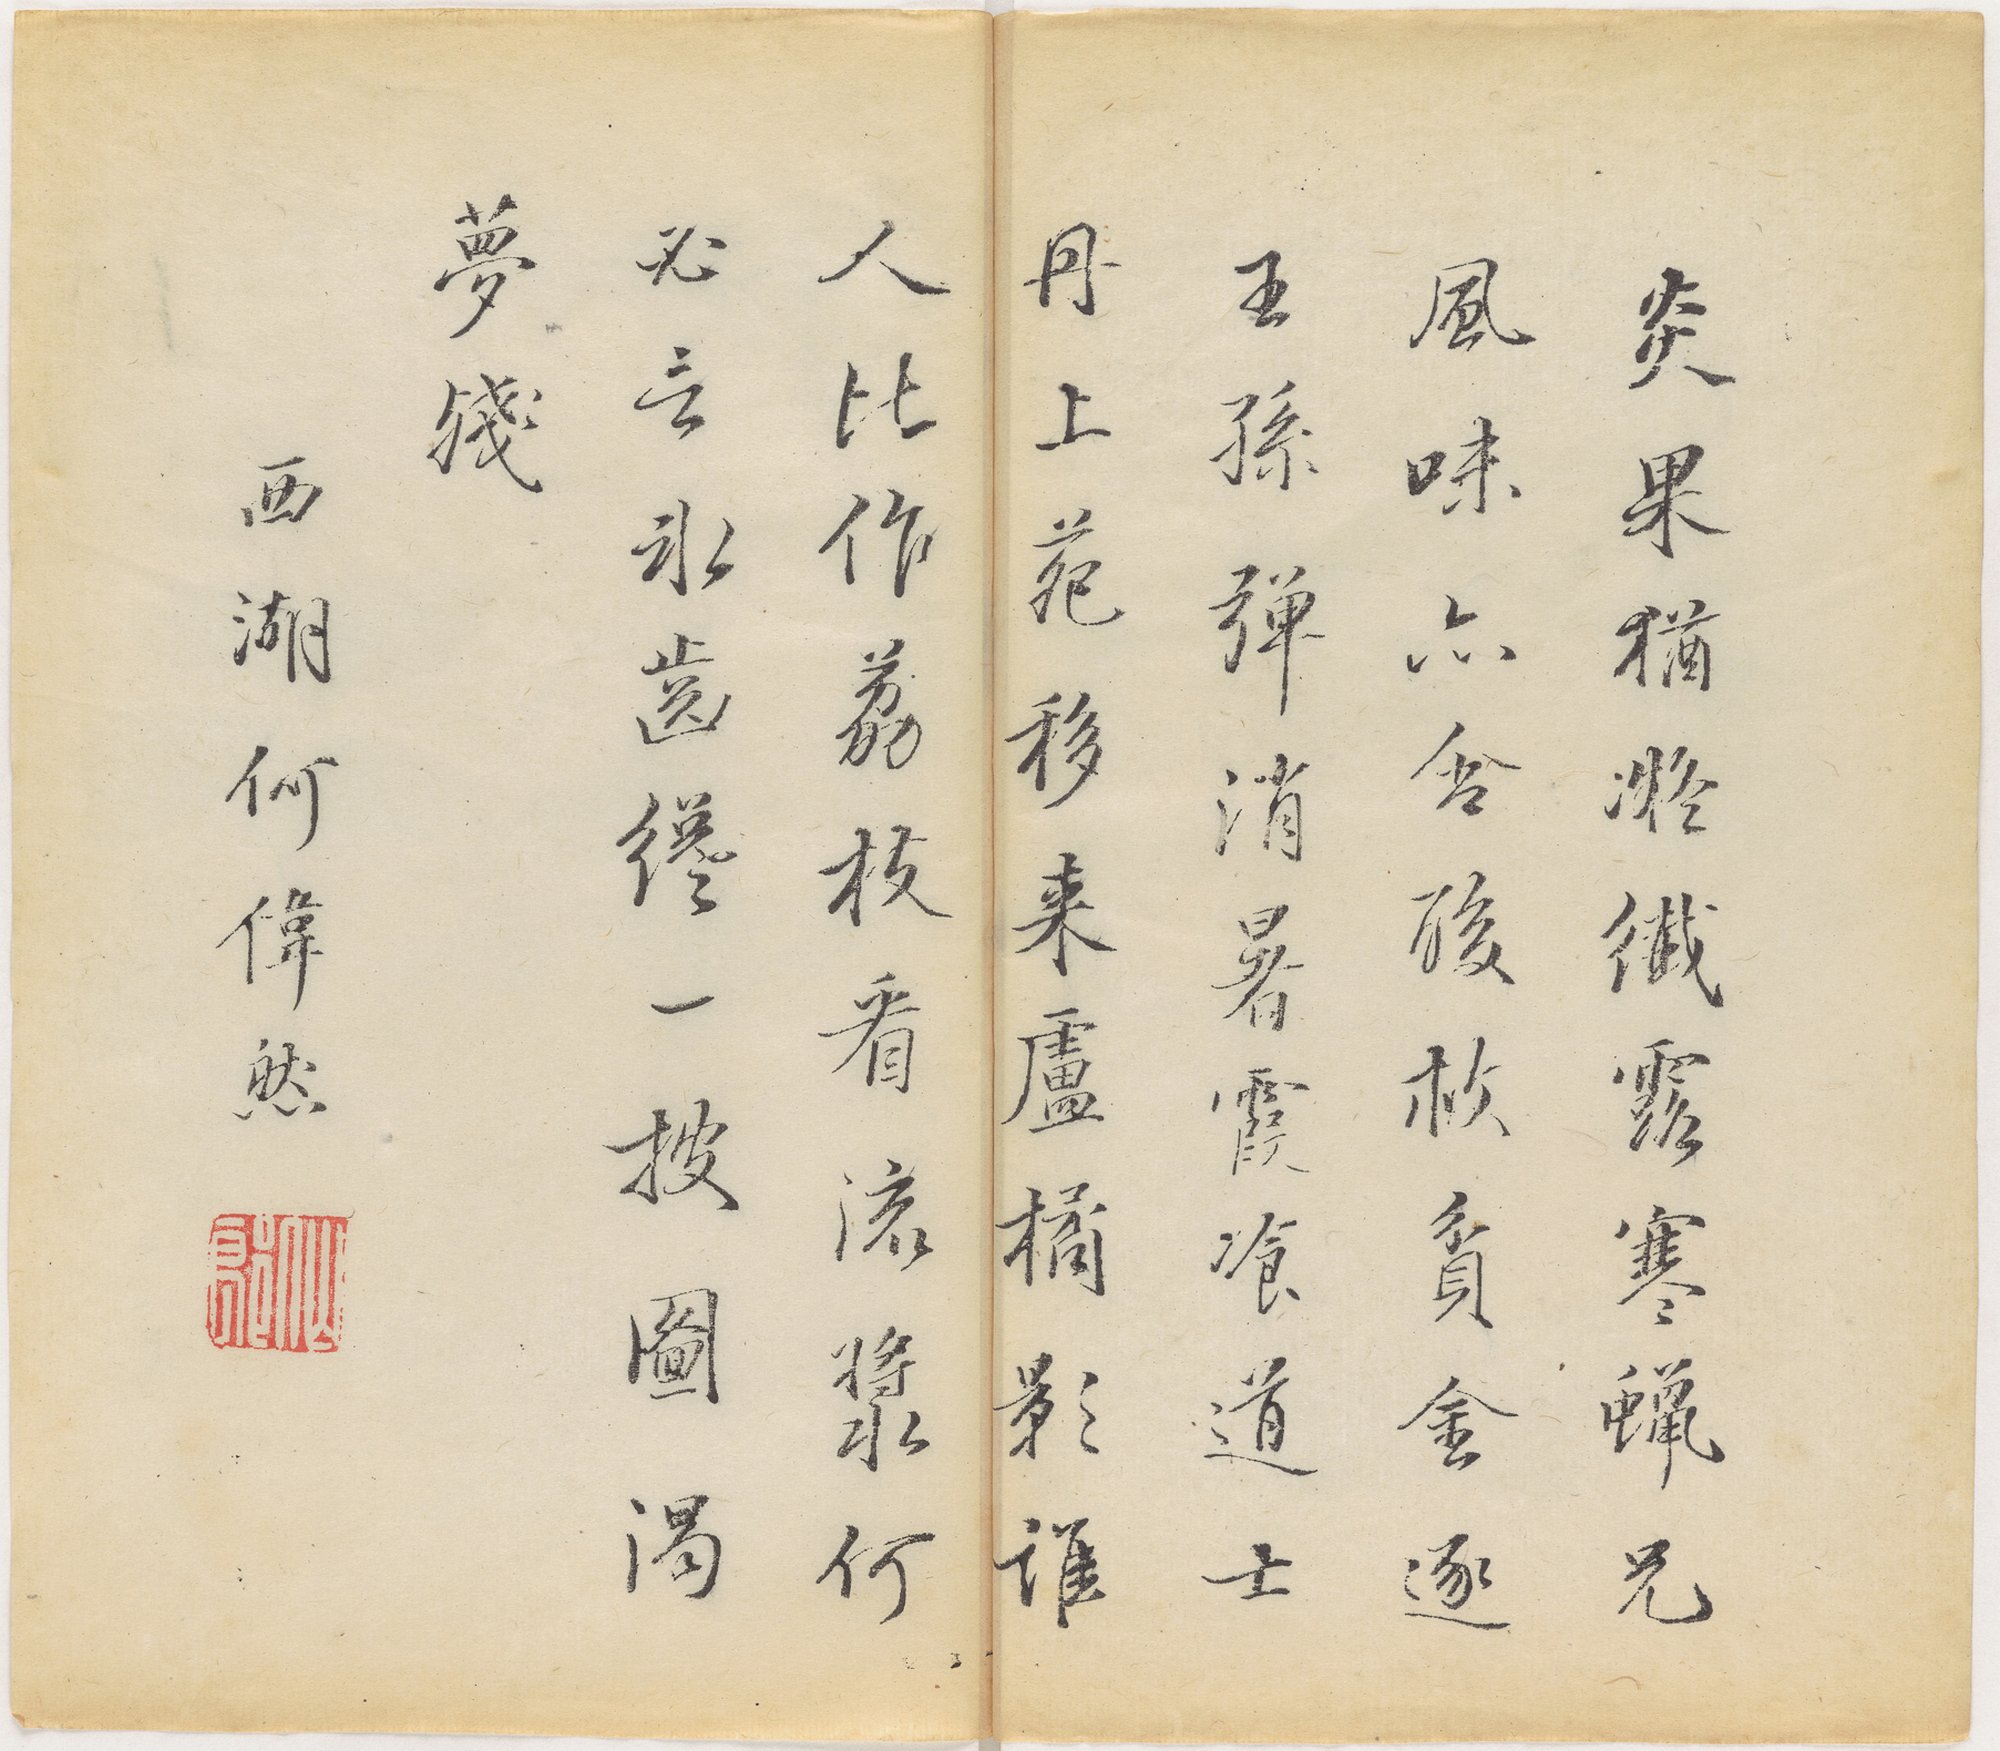 炎果猶凝纖露寒蠟兄
風味亦含酸救貧金逐
王孫彈消暑霞飡道士
丹上苑移来盧橘影誰
人比作荔枝看流漿何
必言冰齒纔一披圖渴
夢殘
西湖何偉然